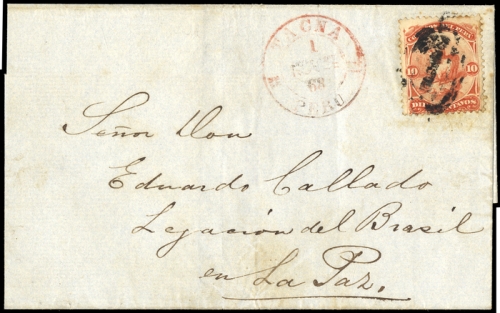 TACNA
1
68
PERU
10 10
Señor Don
Eduardo Callado
Legación del Brasil
en La Paz.